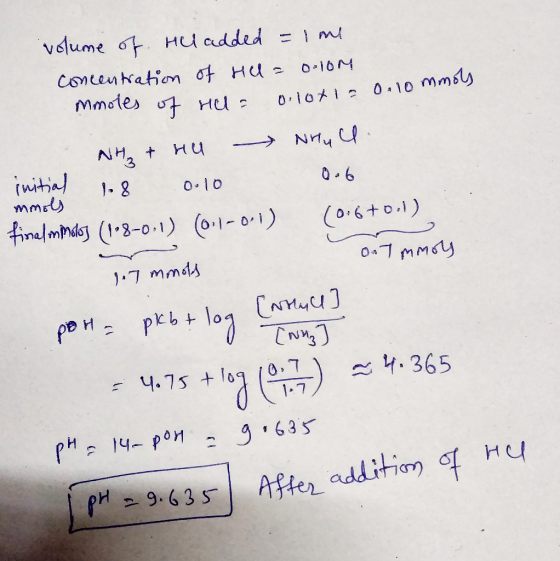 volume of HCl added = 1 ml
Concentration of HCl = 0.10M
mmoles of HCl = 0.10×1 = 0.10 mmols
NH₃ + HCl ⟶ NH₄Cl
initial mmols 1.8 0.10 0.6
final mmoles (1.8-0.1) (0.1-0.1) (0.6+0.1)
1.7 mmols 0.7 mmols
pOH = pKb + log [NH₄Cl]/[NH₃]
= 4.75 + log (0.7/1.7) ≈ 4.365
pH = 14 - pOH = 9.635
pH = 9.635 After addition of HCl